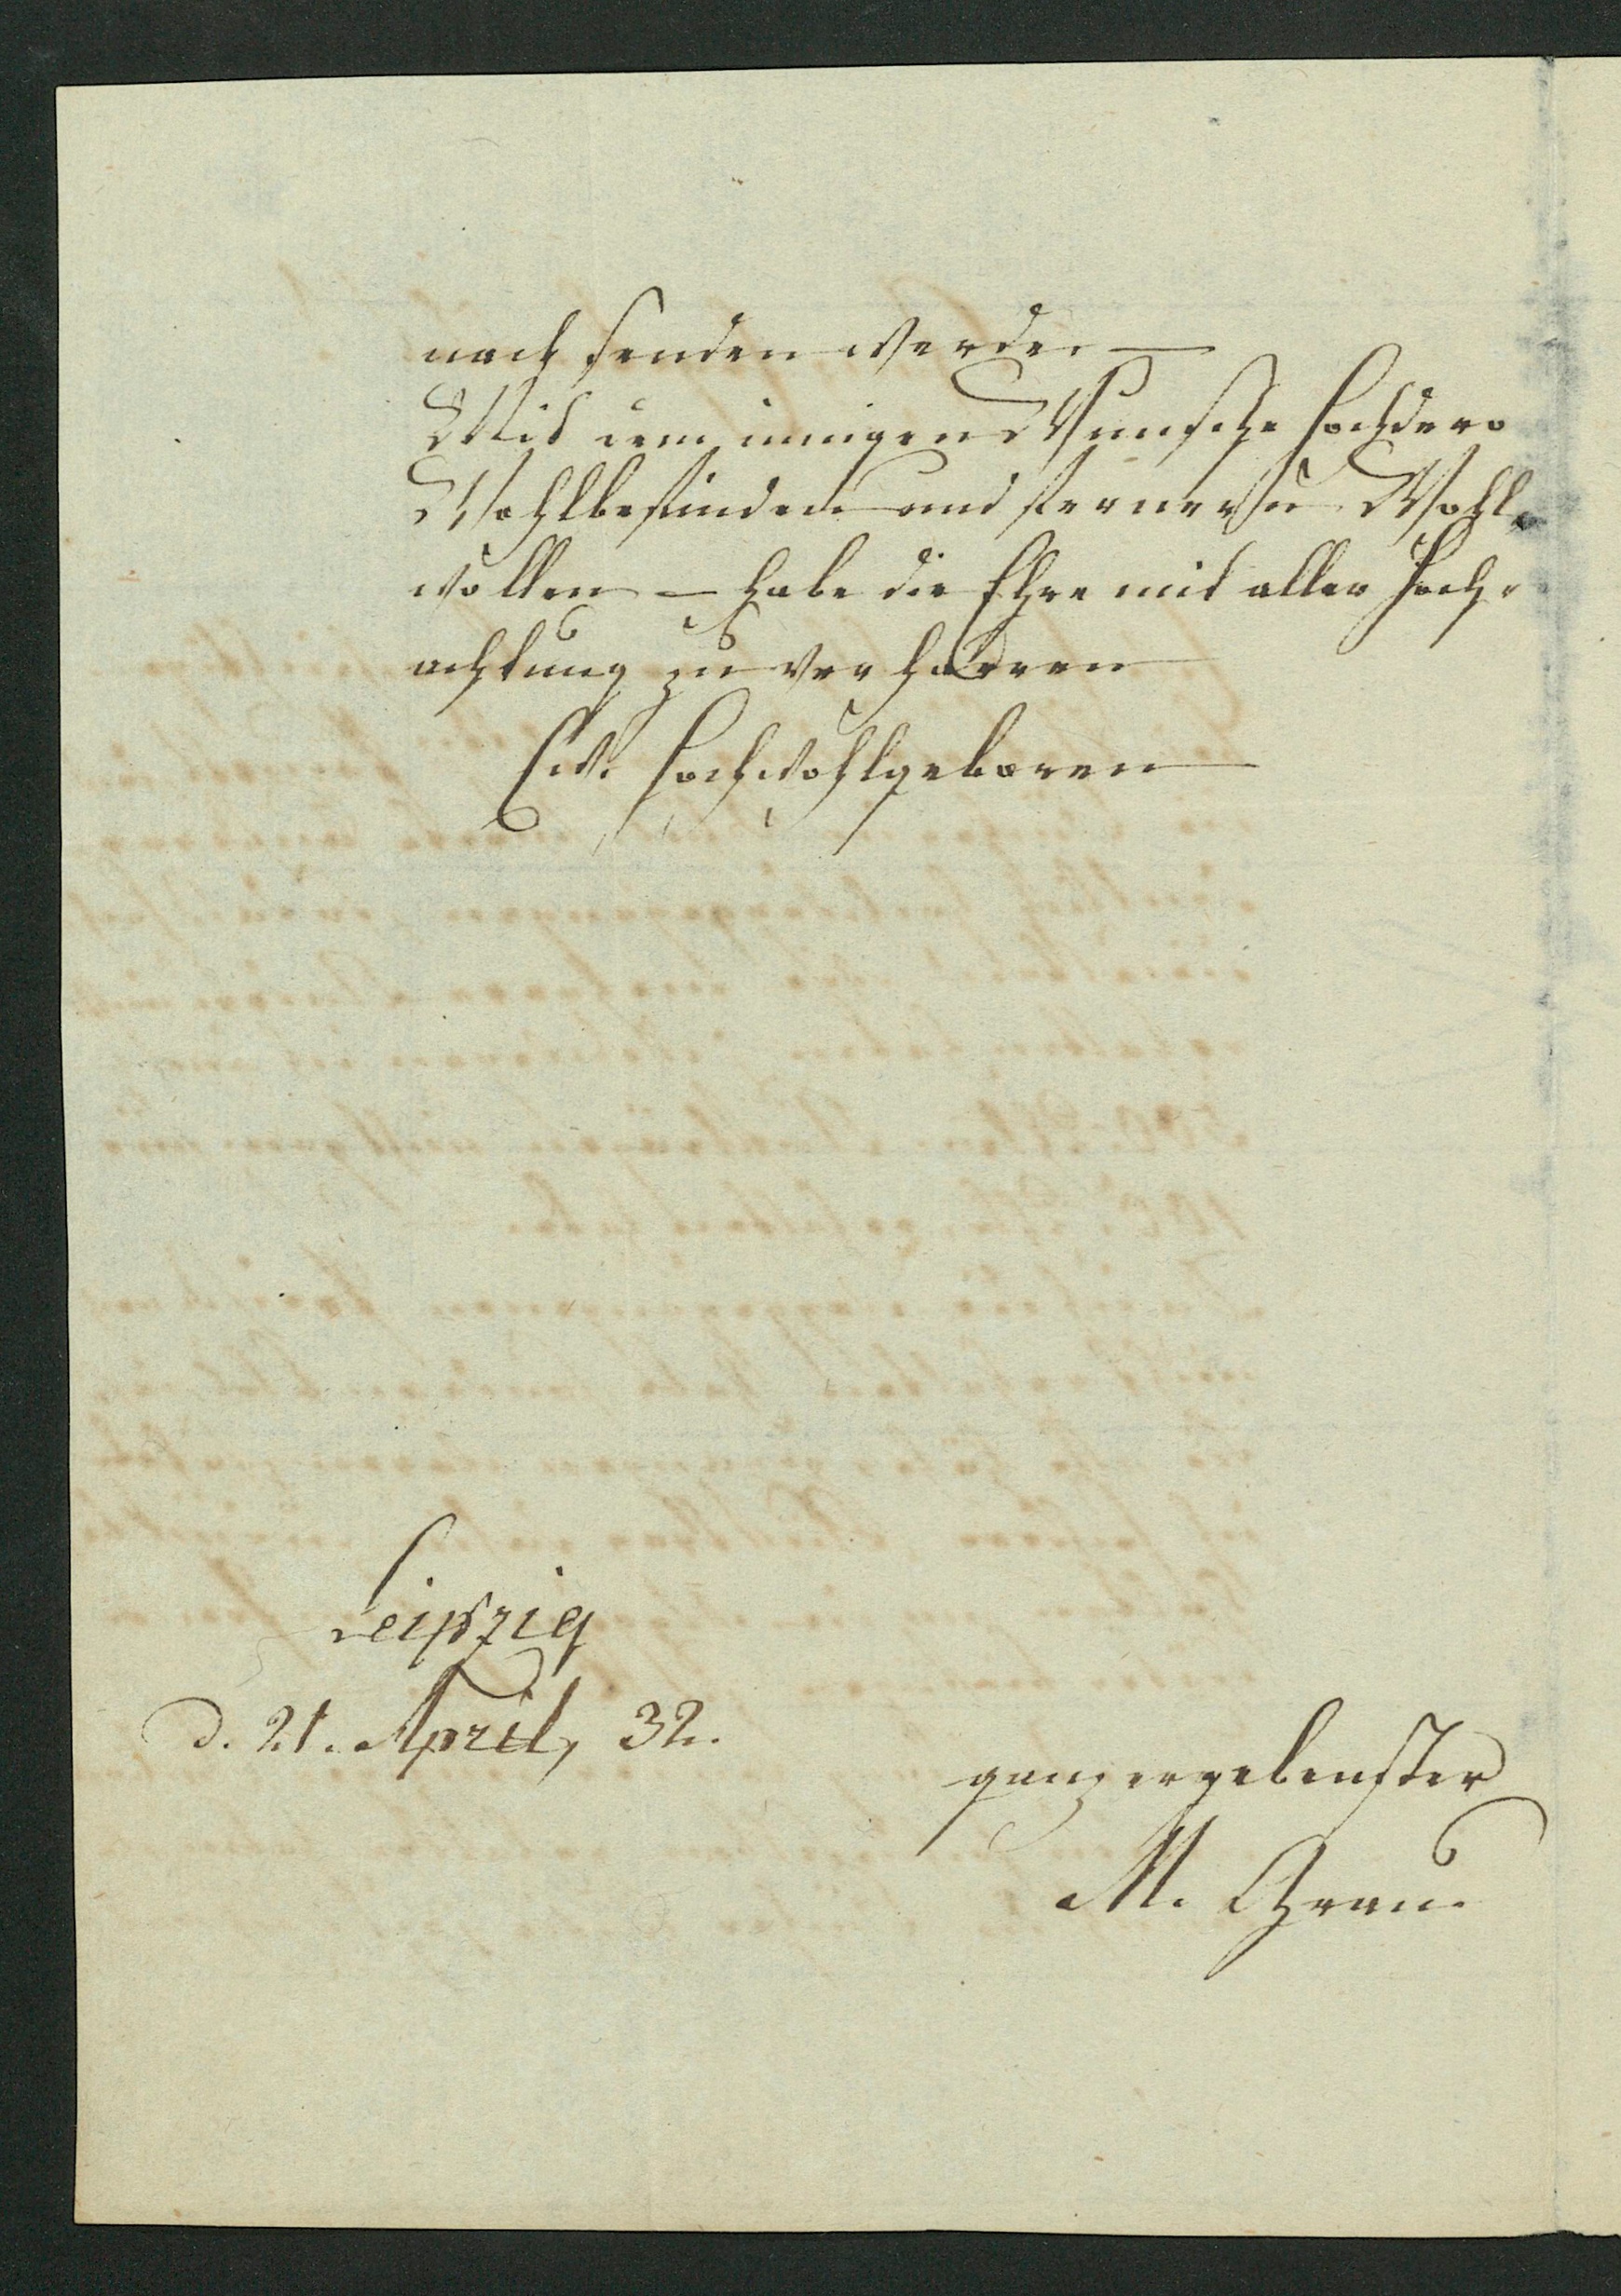 nach senden werde. —
Mit dem innigen Wunsche hochdero
Wohlbefinden und ferneres Wohl-
wollen — habe die Ehre mit aller Hoch-
achtung zu verharren
Ew. Hochwohlgeboren
Leipzig
d. 21. April, 32.
ganz ergebenster
M.